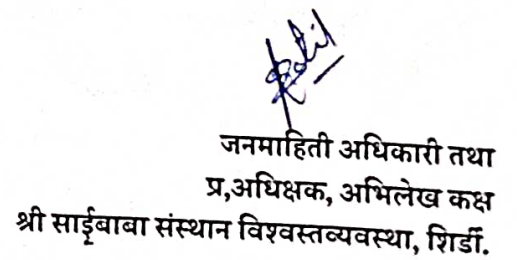 जनमाहिती अधिकारी तथा
प्र,अधिक्षक, अभिलेख कक्ष
श्री साईबाबा संस्थान विश्वस्तव्यवस्था, शिर्डी.